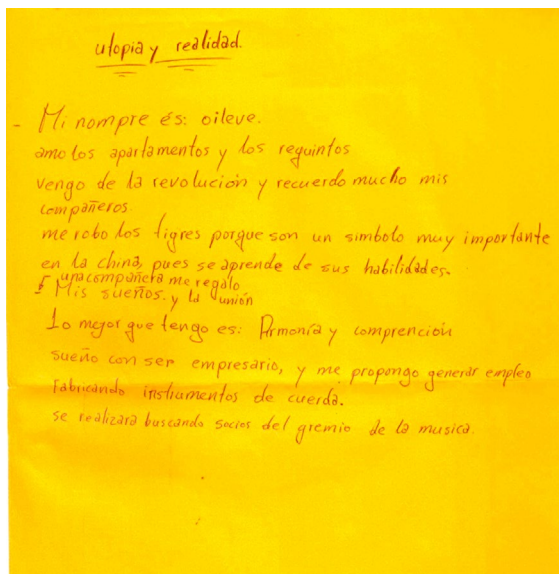 utopia y realidad.
- Mi nompre és: oileve.
amo los apartamentos y los requintos
vengo de la revolución y recuerdo mucho mis
compañeros.
me robo los tigres porque son un simbolo muy importante
en la china, pues se aprende de sus habilidades.
una compañera me regalo
Mis sueños. y la unión
Lo mejor que tengo es: Armonía y comprención
sueño con ser empresario, y me propongo generar empleo
Fabricando instrumentos de cuerda.
se realizara buscando socios del gremio de la musica.